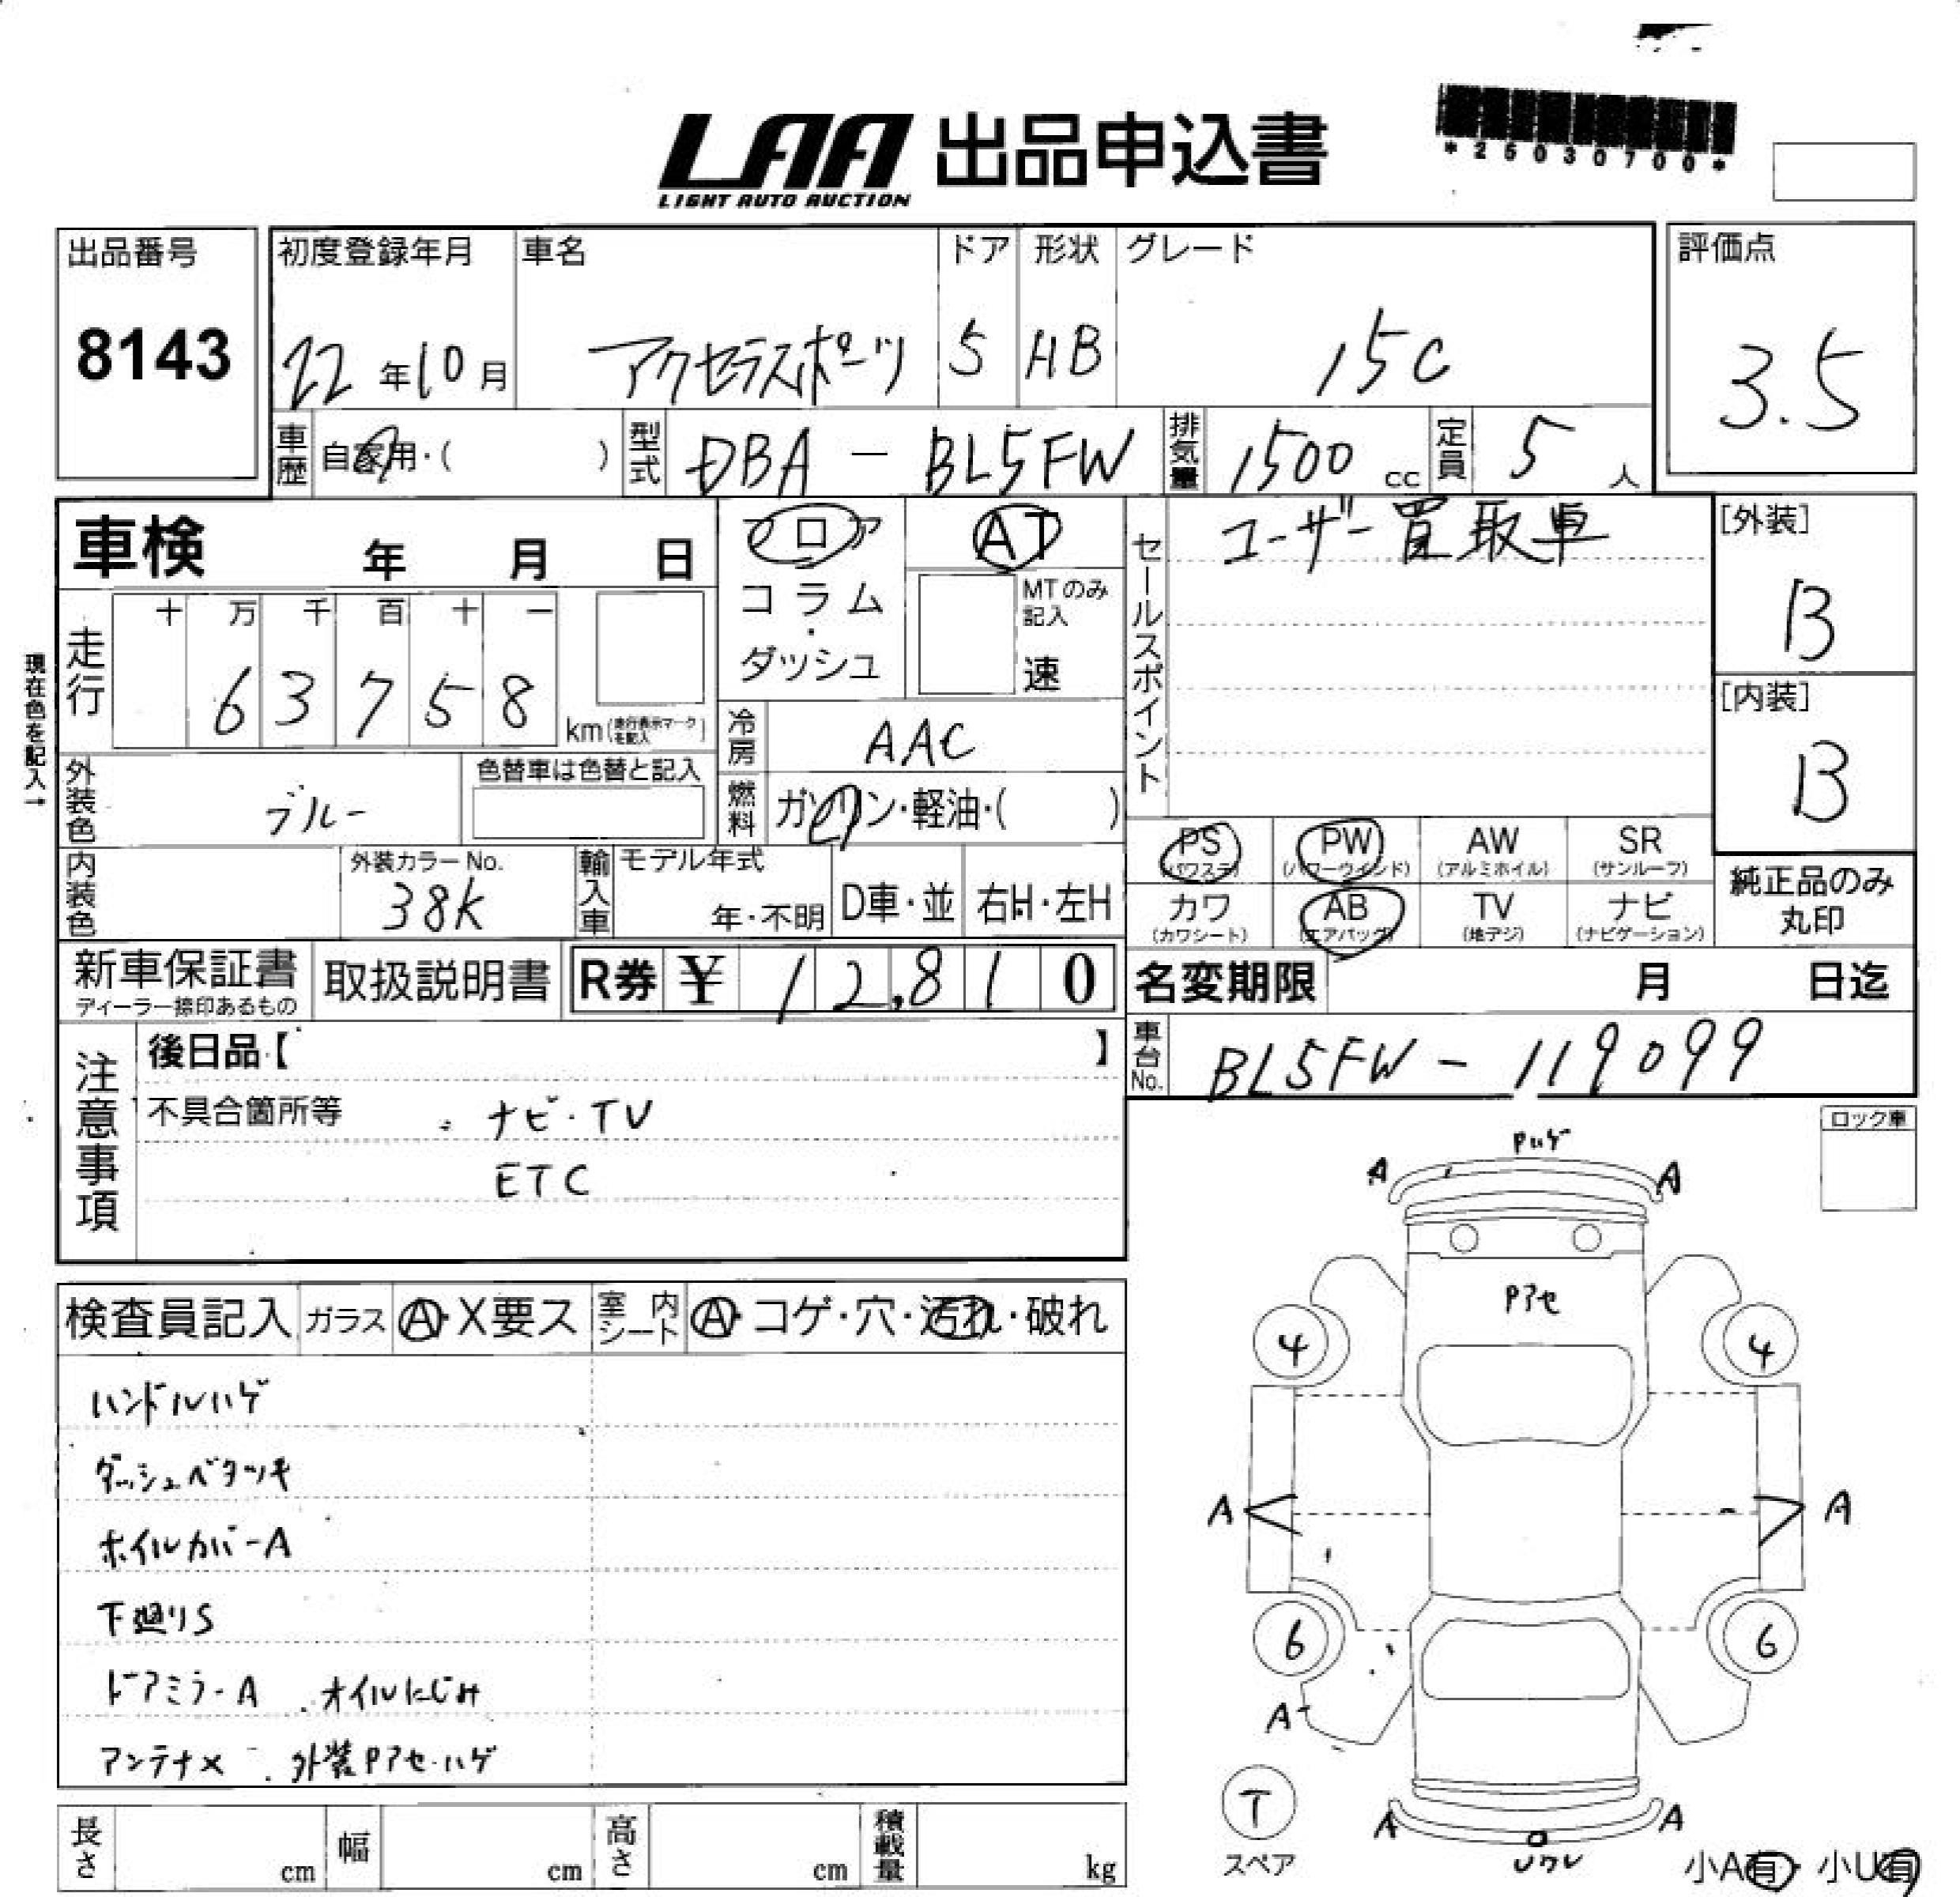 LAA 出品申込書
LIGHT AUTO AUCTION
*25030700*
出品番号
8143
初度登録年月 車名 ドア 形状 グレード
22年10月 アクセラスポーツ 5 HB 15C
評価点
3.5
車歴 自家用・( ) 型式 DBA - BL5FW 排気量 1500 cc 定員 5 人
車検 年 月 日
フロア AT
コラム・ダッシュ
MTのみ記入 速
セールスポイント ユーザー買取車
[外装]
B
[内装]
B
現在色を記入→
走行 十 万 千 百 十 一
6 3 7 5 8 km (走行表示マークを記入)
冷房 AAC
外装色 ブルー 色替車は色替と記入
燃料 ガソリン・軽油・( )
内装色 外装カラーNo. 38K
輸入車 モデル年式 年・不明 D車・並 右H・左H
PS (パワステ) PW (パワーウインド) AW (アルミホイル) SR (サンルーフ)
カワ (カワシート) AB (エアバッグ) TV (地デジ) ナビ (ナビゲーション)
純正品のみ丸印
新車保証書 ディーラー捺印あるもの 取扱説明書 R券 ¥ 12,810
名変期限 月 日迄
車台No. BL5FW - 119099
注意事項
後日品【 】
不具合箇所等 ・ナビ・TV
ETC
ロック車
検査員記入 ガラス A・X要ス 室内シート A・コゲ・穴・汚れ・破れ
ハンドルハゲ
ダッシュベタツキ
ホイルカバーA
下廻りS
ドアミラーA ・オイルにじみ
アンテナX ・外装Pアセ・ハゲ
Pハゲ
A A
Pアセ
4 4
A A
6 6
A
T
スペア
A A
小A有・小U有
長さ cm 幅 cm 高さ cm 積載量 kg